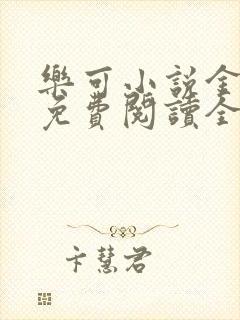 樂可小說全
免費閱讀全
卞慧君